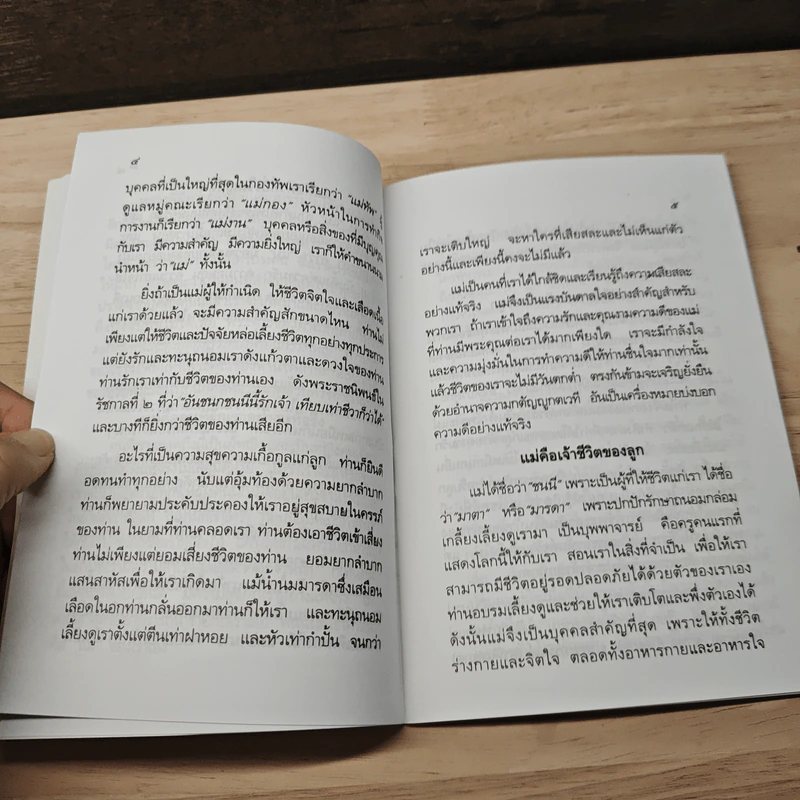 ๔
บุคคลที่เป็นใหญ่ที่สุดในกองทัพเราเรียกว่า "แม่ทัพ"
ดูแลหมู่คณะเรียกว่า "แม่กอง" หัวหน้าในการทำ
การงานก็เรียกว่า "แม่งาน" บุคคลหรือสิ่งของที่มีบุญคุณ
กับเรา มีความสำคัญ มีความยิ่งใหญ่ เราก็ให้คำขนานนาม
นำหน้า ว่า "แม่" ทั้งนั้น
ยิ่งถ้าเป็นแม่ผู้ให้กำเนิด ให้ชีวิตจิตใจและเลือดเนื้อ
แก่เราด้วยแล้ว จะมีความสำคัญสักขนาดไหน ท่านไม่
เพียงแต่ให้ชีวิตและปัจจัยหล่อเลี้ยงชีวิตทุกอย่างทุกประการ
แต่ยังรักและทะนุถนอมเราดังแก้วตาและดวงใจของท่าน
ท่านรักเราเท่ากับชีวิตของท่านเอง ดังพระราชนิพนธ์ใน
รัชกาลที่ ๒ ที่ว่า "อันชนกชนนีนี้รักเจ้า เทียบเท่าชีวาก็ว่าได้"
และบางทีก็ยิ่งกว่าชีวิตของท่านเสียอีก
อะไรที่เป็นความสุขความเกื้อกูลแก่ลูก ท่านก็ยินดี
อดทนทำทุกอย่าง นับแต่อุ้มท้องด้วยความยากลำบาก
ท่านก็พยายามประคับประคองให้เราอยู่สุขสบายในครรภ์
ของท่าน ในยามที่ท่านคลอดเรา ท่านต้องเอาชีวิตเข้าเสี่ยง
ท่านไม่เพียงแต่ยอมเสี่ยงชีวิตของท่าน ยอมยากลำบาก
แสนสาหัสเพื่อให้เราเกิดมา แม้น้ำนมมารดาซึ่งเสมือน
เลือดในอกท่านกลั่นออกมาท่านก็ให้เรา และทะนุถนอม
เลี้ยงดูเราตั้งแต่ตีนเท่าฝาหอย และหัวเท่ากำปั้น จนกว่า
๕
เราจะเติบใหญ่ จะหาใครที่เสียสละและไม่เห็นแก่ตัว
อย่างนี้และเพียงนี้คงจะไม่มีแล้ว
แม่เป็นคนที่เราได้ใกล้ชิดและเรียนรู้ถึงความเสียสละ
อย่างแท้จริง แม่จึงเป็นแรงบันดาลใจอย่างสำคัญสำหรับ
พวกเรา ถ้าเราเข้าใจถึงความรักและคุณงามความดีของแม่
ที่ท่านมีพระคุณต่อเราได้มากเพียงใด เราจะมีกำลังใจ
และความมุ่งมั่นในการทำความดีให้ท่านชื่นใจมากเท่านั้น
แล้วชีวิตของเราจะไม่มีวันตกต่ำ ตรงกันข้ามจะเจริญยั่งยืน
ด้วยอำนาจความกตัญญูกตเวที อันเป็นเครื่องหมายบ่งบอก
ความดีอย่างแท้จริง
แม่คือเจ้าชีวิตของลูก
แม่ได้ชื่อว่า "ชนนี" เพราะเป็นผู้ที่ให้ชีวิตแก่เรา ได้ชื่อ
ว่า "มาตา" หรือ "มารดา" เพราะปกปักรักษาถนอมกล่อม
เกลี้ยงเลี้ยงดูเรามา เป็นบุพพาจารย์ คือครูคนแรกที่
แสดงโลกนี้ให้กับเรา สอนเราในสิ่งที่จำเป็น เพื่อให้เรา
สามารถมีชีวิตอยู่รอดปลอดภัยได้ด้วยตัวของเราเอง
ท่านอบรมเลี้ยงดูและช่วยให้เราเติบโตและพึ่งตัวเองได้
ดังนั้นแม่จึงเป็นบุคคลสำคัญที่สุด เพราะให้ทั้งชีวิต
ร่างกายและจิตใจ ตลอดทั้งอาหารกายและอาหารใจ